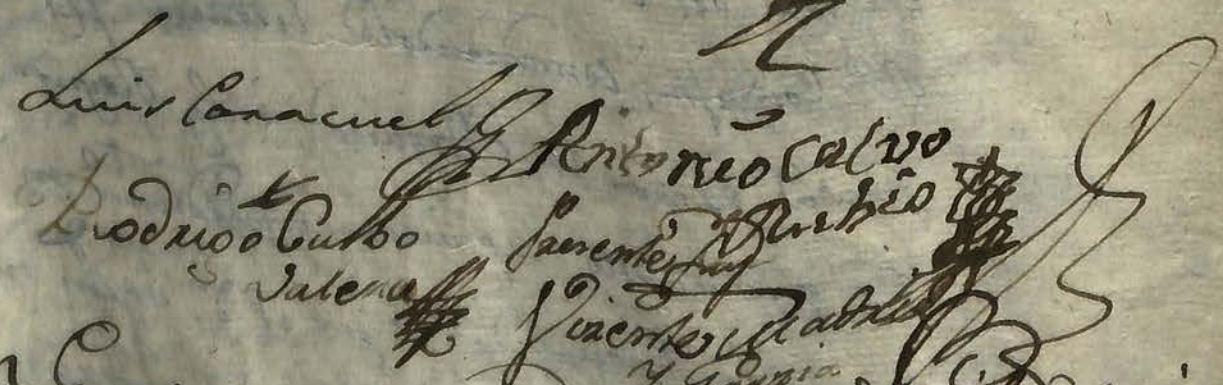 Luis Caracuel
Antonio Calvo
Rodrigo Calbo
Valena
Vicente Rubio
Vicente Madrid
y Garcia